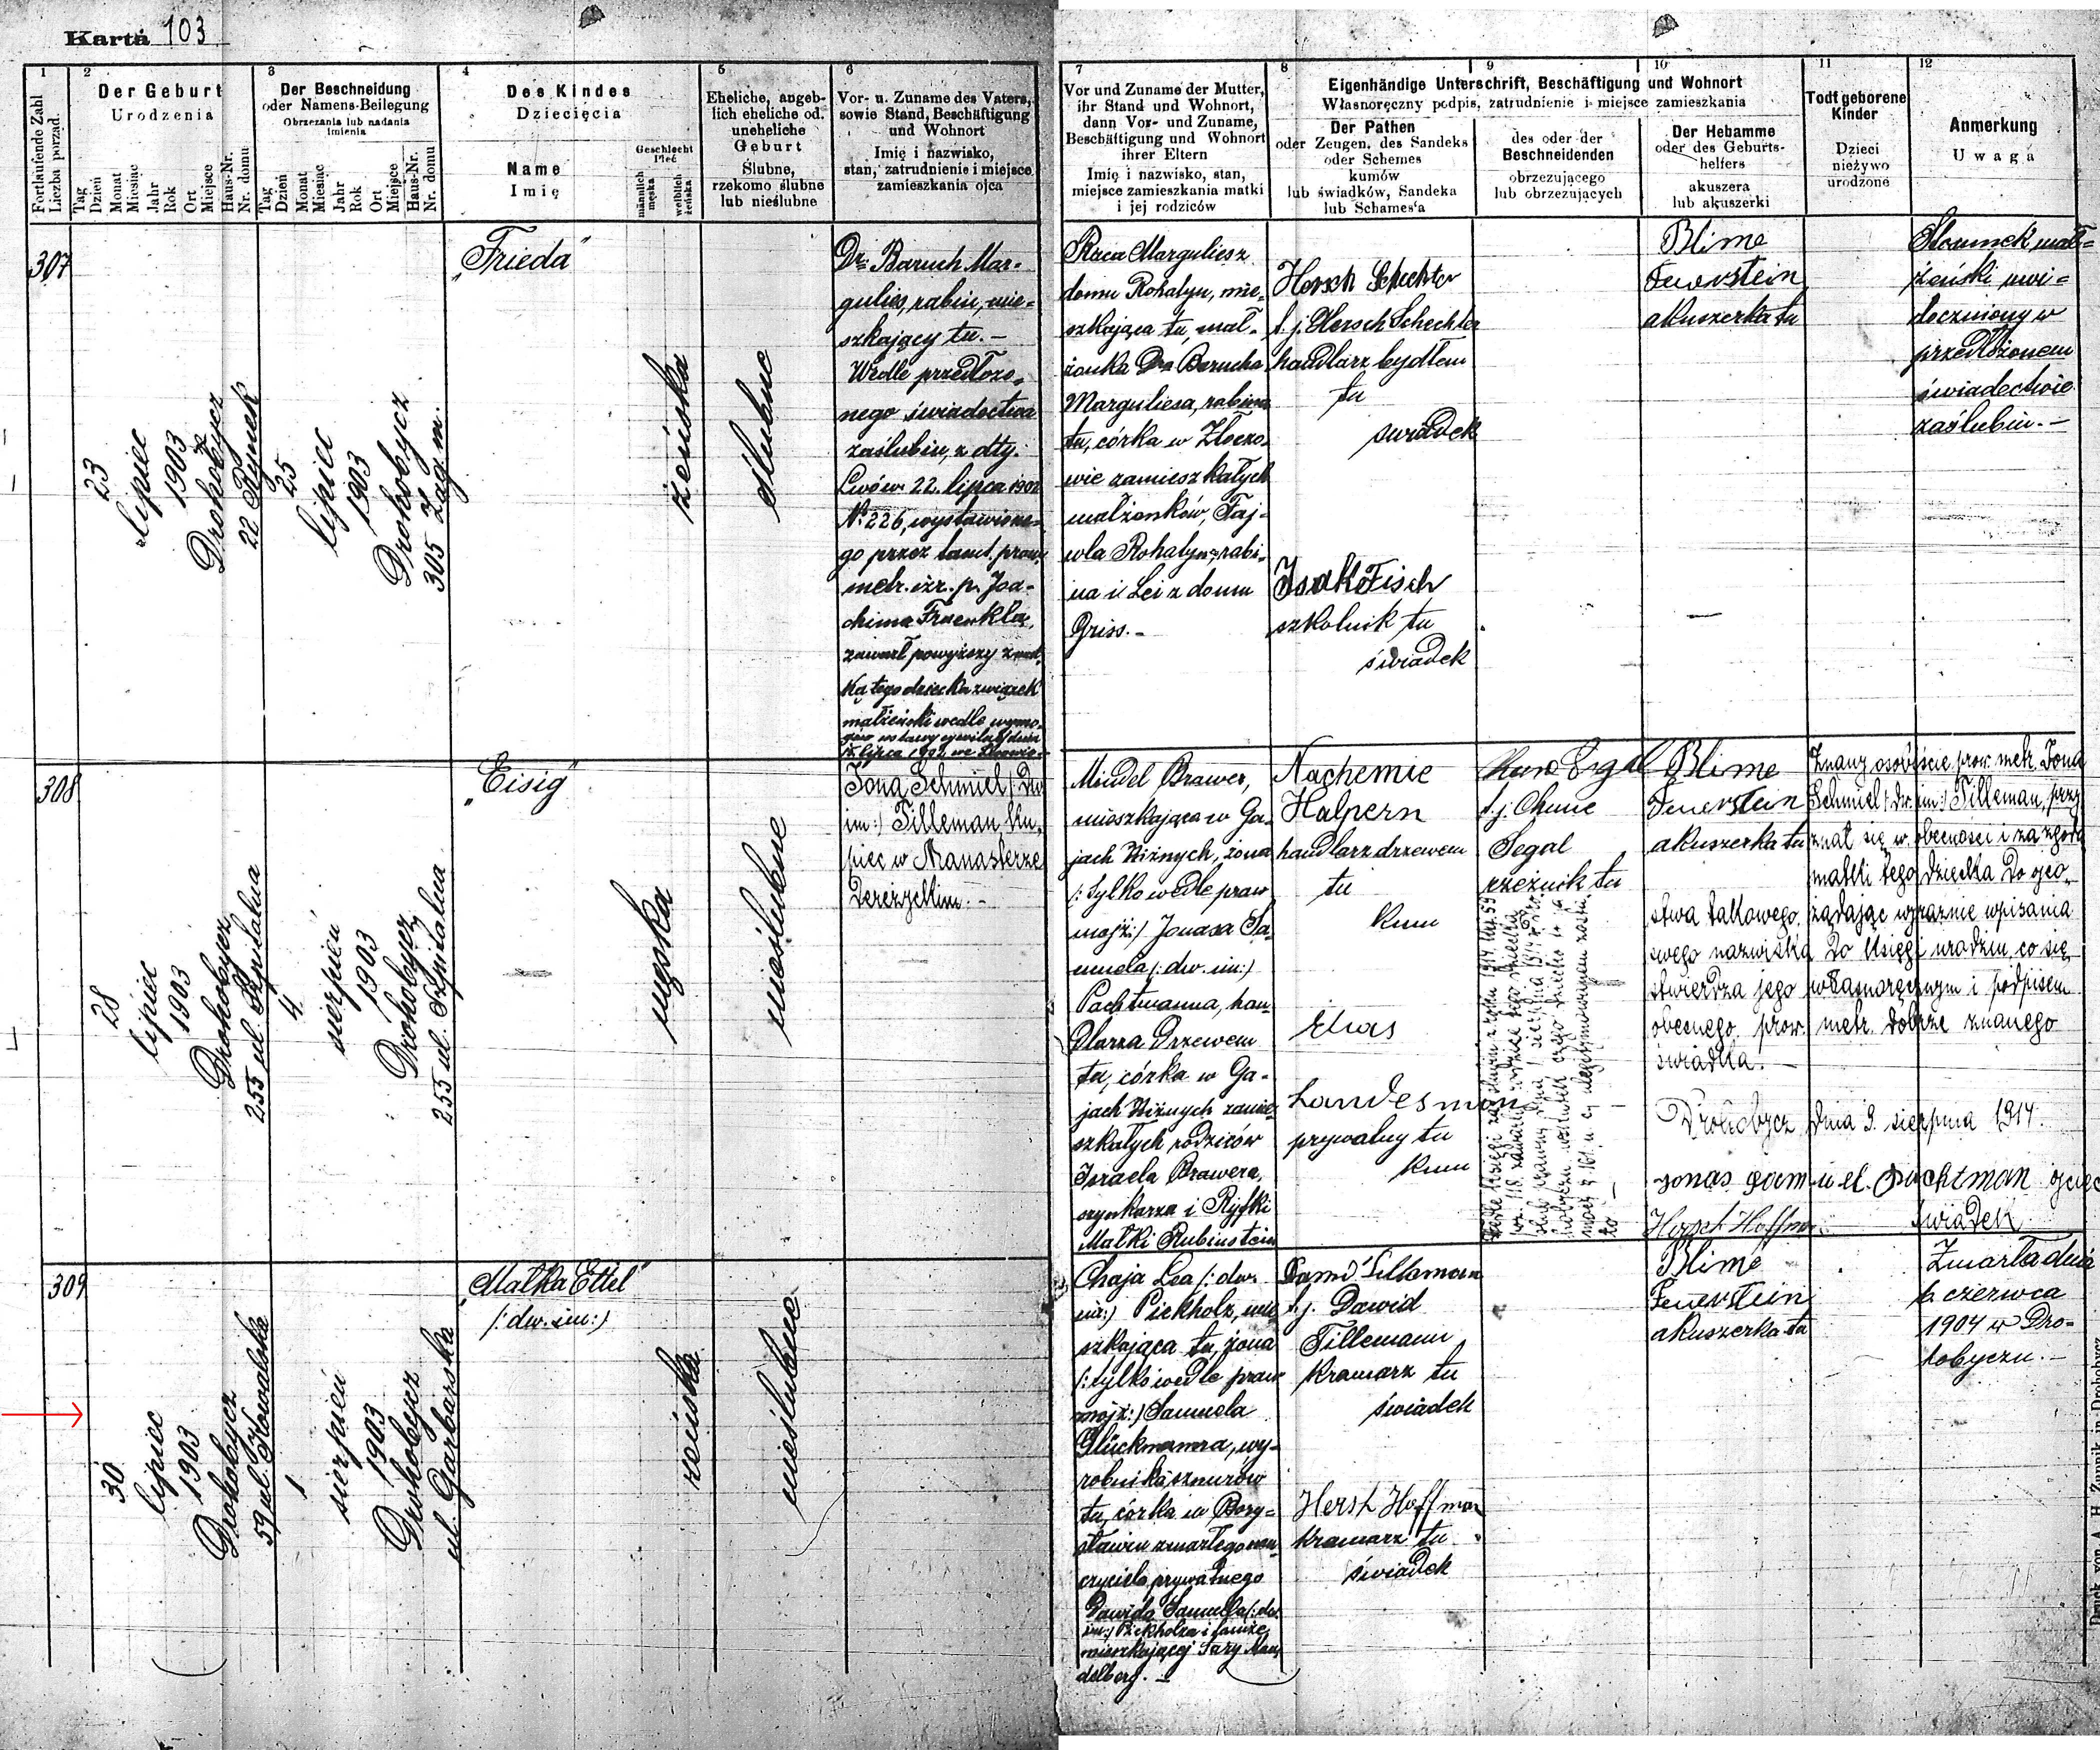 Karta 103
1
Fortlaufende Zahl
Liczba porząd.
2
Der Geburt
Urodzenia
Tag
Dzień
Monat
Miesiąc
Jahr
Rok
Ort
Miejsce
Haus-Nr.
Nr. domu
3
Der Beschneidung
oder Namens-Beilegung
Obrzezania lub nadania
imienia
Tag
Dzień
Monat
Miesiąc
Jahr
Rok
Ort
Miejsce
Haus-Nr.
Nr. domu
4
Des Kindes
Dziecięcia
Name
Imię
Geschlecht
Płeć
männlich
męska
weiblich
żeńska
5
Eheliche, angeb-
lich eheliche od.
uneheliche
Geburt
Ślubne,
rzekomo ślubne
lub nieślubne
6
Vor- u. Zuname des Vaters,
sowie Stand, Beschäftigung
und Wohnort
Imię i nazwisko,
stan, zatrudnienie i miejsce
zamieszkania ojca
7
Vor und Zuname der Mutter,
ihr Stand und Wohnort,
dann Vor- und Zuname,
Beschäftigung und Wohnort
ihrer Eltern
Imię i nazwisko, stan,
miejsce zamieszkania matki
i jej rodziców
8
9
10
Eigenhändige Unterschrift, Beschäftigung und Wohnort
Własnoręczny podpis, zatrudnienie i miejsce zamieszkania
Der Pathen
oder Zeugen, des Sandeks
oder Schemes
kumów
lub świadków, Sandeka
lub Schames'a
des oder der
Beschneidenden
obrzezującego
lub obrzezujących
Der Hebamme
oder des Geburts-
helfers
akuszera
lub akuszerki
11
Todt geborene
Kinder
Dzieci
nieżywo
urodzone
12
Anmerkung
Uwaga
307
23
lipiec
1903
Drohobycz
22 Rynek
25
lipiec
1903
Drohobycz
305 Zag. m.
„Frieda"
żeńska
ślubne
Dr. Baruch Mar-
gulies, rabin, mie-
szkający tu. -
Wedle przedłożo-
nego świadectwa
zaślubin, z dty.
Lwów 22. lipca 1902
No 226, wystawione-
go przez tamt. prow.
metr. izr. p. Joa-
chima Fraenkla,
zawarł powyższy z mat-
ką tego dziecka związek
małżeński wedle wymo-
gów ustawy cywilnej dnia
lipca 1902 we Lwowie.
Róza Marguliesz
domu Rohatyn, mie-
szkająca tu, mał-
żonka Dra Barucha
Marguliesa, rabina
tu, córka w Złoczo-
wie zamieszkałych
małżonków, Faj-
wla Rohatyna, rabi-
na i Lei z domu
Griss. -
Hersch Schechter
t. j. Hersch Schechter
handlarz bydłem
tu
świadek
Isak Fisch
szkolnik tu
świadek
Blime
Feuerstein
akuszerka tu
Stosunek mał-
żeński uwi-
doczniony w
przedłożonem
świadectwie
zaślubin. -
308
28
lipiec
1903
Drohobycz
255 ul. Szpitalna
4.
sierpień
1903
Drohobycz
255 ul. Szpitalna
„Eisig"
męska
nieślubne
Jona Schmiel (: dw.
im :) Tilleman, ku-
piec w Manasterze
Dereżyckim. -
Mindel Brawer,
mieszkająca w Ga-
jach Niżnych, żona
(: tylko wedle praw
mojż :) Jonasa Sa-
muela (: dw. im :)
Pachtmanna, han-
dlarza drzewem
tu, córka w Ga-
jach Niżnych zamie-
szkałych rodziców
Israela Brawera,
szynkarza i Ryfki
Małki Rubinstein
Nachemie
Halpern
handlarz drzewem
tu
kum
Elias
Landesman
prywatny tu
kum
t. j. Chune
Segal
rzeźnik tu
Blime
Feuerstein
akuszerka tu
Znany osobiście prow. metr. Jona
Schmiel (: dw. im :) Tilleman, przy-
znał się w obecności i za zgodą
matki tego dziecka do ojco-
stwa takowego, żądając wyraźnie wpisania
swego nazwiska do księgi urodzin, co się
stwierdza jego własnoręcznym i podpisem
obecnego prow. metr. dobrze znanego
świadka. -
Drohobycz dnia 9. sierpnia 1914.
Jonas Samuel Pachtman ojciec
Hersch Hoffman świadek
309
30
lipiec
1903
Drohobycz
59 ul. Kowalska
1
sierpień
1903
Drohobycz
ul. Garbarska
„Małka Ettel"
(: dw. im :)
żeńska
nieślubne
Chaja Lea (: dw.
im :) Pickholz, mie-
szkająca tu, żona
(: tylko wedle praw
mojż :) Samuela
Glückmanna, wy-
robnika sznurów
tu, córka w Bory-
sławiu zmarłego nau-
czyciela prywatnego
Dawida Samuela (: dw.
im :) Pickholza i tamże
mieszkającej Sary Man-
delberg. -
Dawid Tilleman
t. j. Dawid
Tillemann
kramarz tu
świadek
Hersh Hoffman
kramarz tu
świadek
Blime
Feuerstein
akuszerka tu
Zmarła dnia
6. czerwca
1904 w Dro-
hobyczu. -
Druck von A. H. Żupnik in Drohobycz